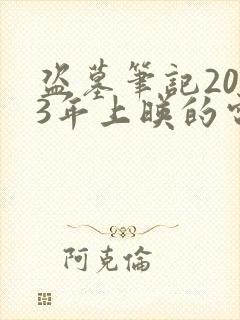 盗墓筆記20
3年上映的
阿克倫